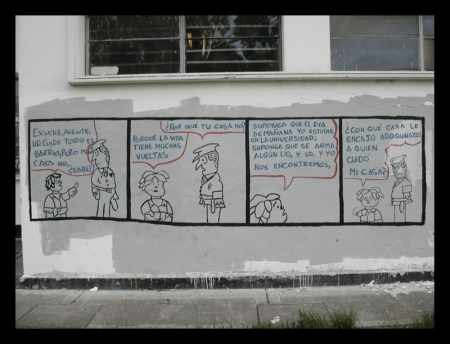 ESCUCHE, AGENTE,
UD CUIDE TODO EL
BARRIO, PERO MI
CASA NO,
¿SABE?
¿POR QUÉ TU CASA NO?
PORQUE LA VIDA
TIENE MUCHAS
VUELTAS
SUPONGA QUE EL DIA
DE MAÑANA YO ESTUDIE
EN LA UNIVERSIDAD;
SUPONGA QUE SE ARMA
ALGÚN LÍO, Y UD. Y YO
NOS ENCONTREMOS,
¿CON QUÉ CARA LE
ENCAJO ADOQUINAZOS
A QUIEN
CUIDÓ
MI CASA?